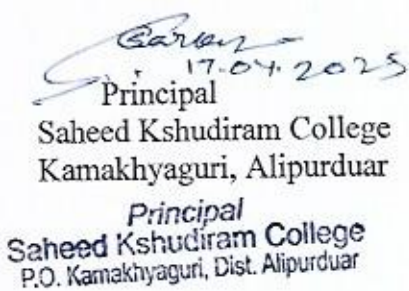 17.04.2025
Principal
Saheed Kshudiram College
Kamakhyaguri, Alipurduar
Principal
Saheed Kshudiram College
P.O. Kamakhyaguri, Dist. Alipurduar